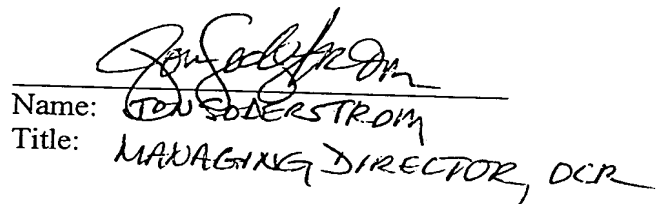 Jon Soderstrom
Name: JON SODERSTROM
Title: MANAGING DIRECTOR, OCR